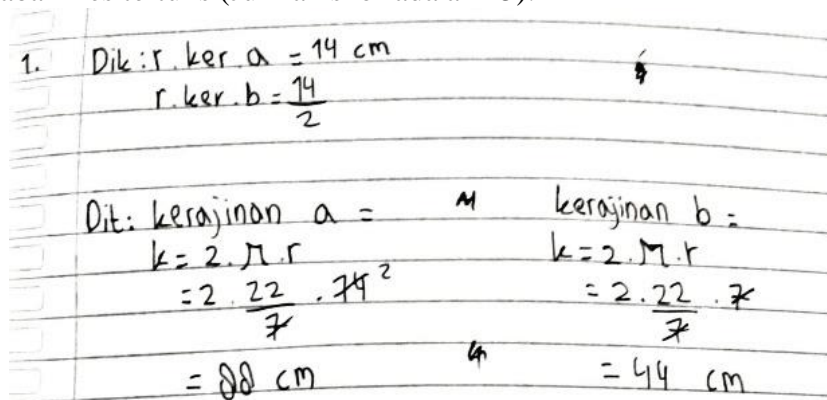 1. Dik : r. ker. a = 14 cm
r. ker. b = 14/2
Dit : kerajinan a =
k = 2. π. r
= 2. 22/7 . 14 2
= 88 cm
kerajinan b =
k = 2. π. r
= 2. 22/7 . 7
= 44 cm